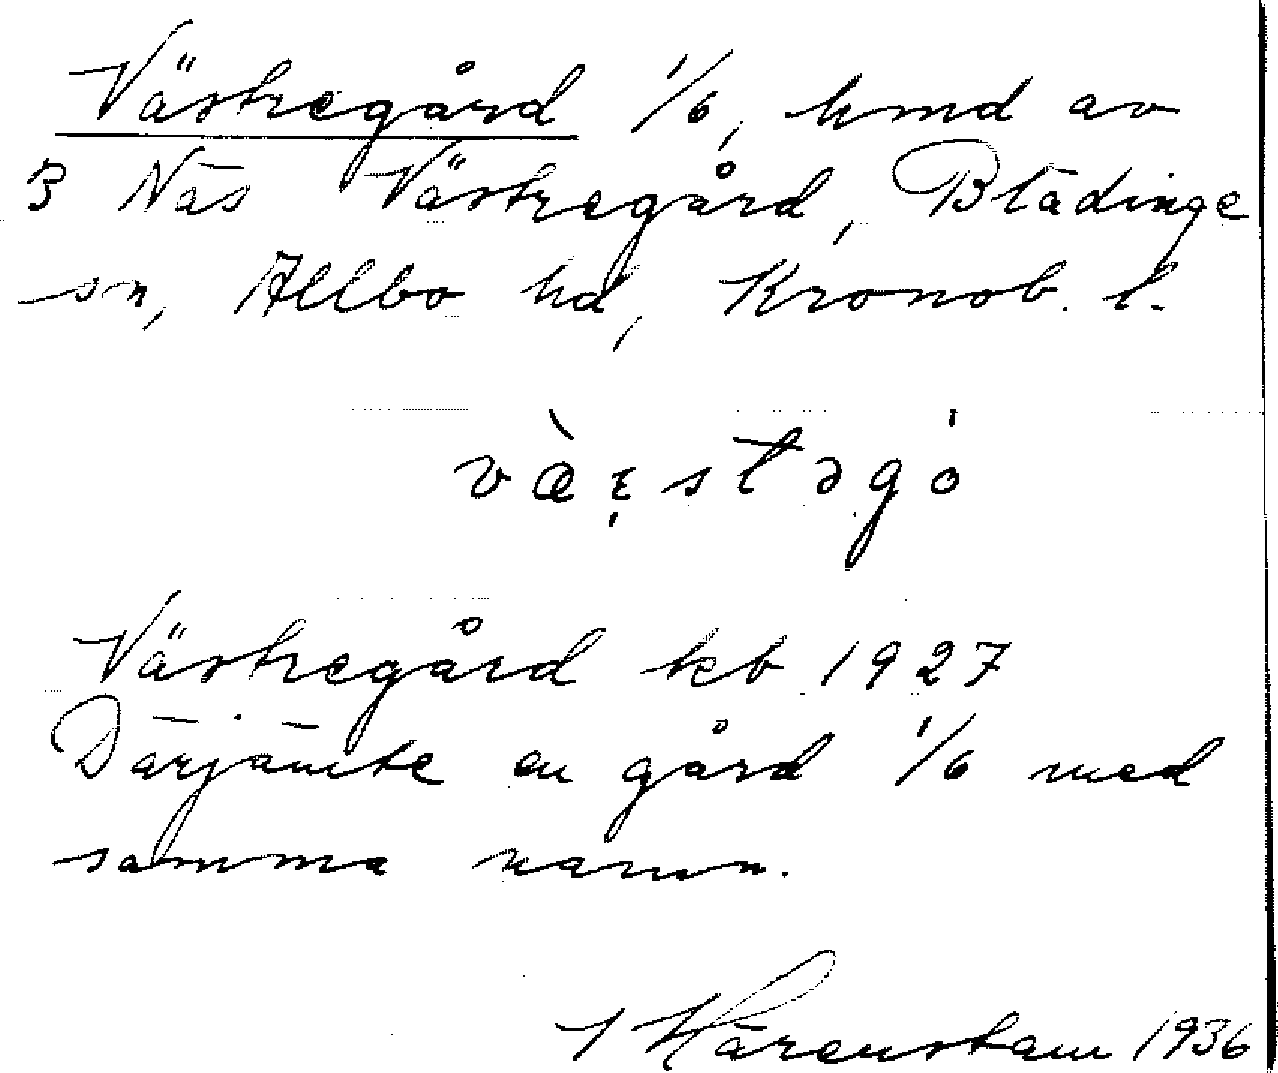 Västregård 1/6, hmd av
3 Näs Västregård, Blädinge
sn, Allbo hd, Kronob. l.
Västregård kb 1927
Därjämte en gård 1/6 med
samma namn.
Härenstam 1936